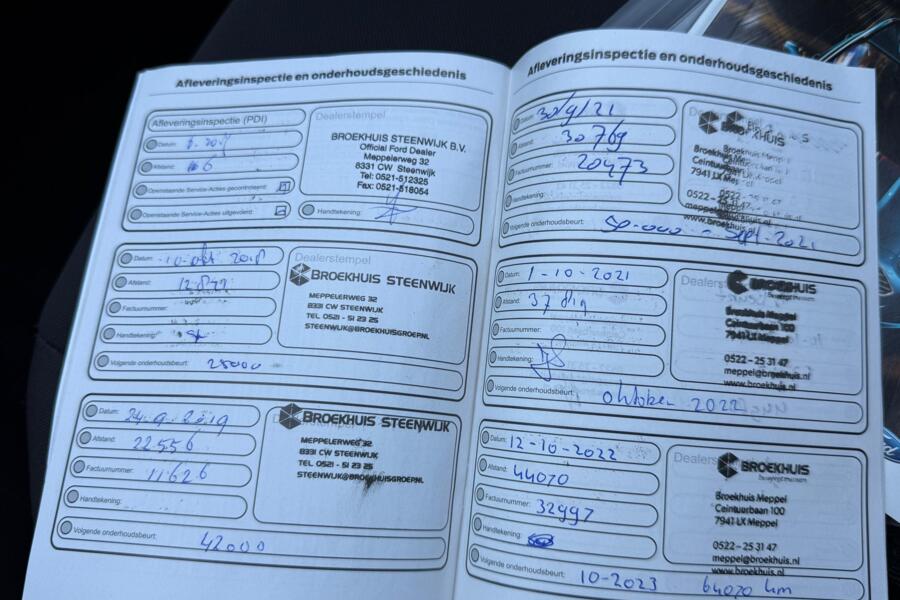 Afleveringsinspectie en onderhoudsgeschiedenis
Afleveringsinspectie (PDI)
Datum:
Afstand: 6
Openstaande Service-Acties gecontroleerd:
Openstaande Service-Acties uitgevoerd:
Dealerstempel
BROEKHUIS STEENWIJK B.V.
Official Ford Dealer
Meppelerweg 32
8331 CW Steenwijk
Tel: 0521-512325
Fax: 0521-518054
Handtekening:
Datum: 10-okt 2018
Afstand:
Factuurnummer:
Handtekening:
Volgende onderhoudsbeurt: 25000
Dealerstempel
BROEKHUIS STEENWIJK
MEPPELERWEG 32
8331 CW STEENWIJK
TEL 0521 - 51 23 25
STEENWIJK@BROEKHUISGROEP.NL
Datum: 24-9-2019
Afstand: 22556
Factuurnummer: 11626
Handtekening:
Volgende onderhoudsbeurt: 42000
BROEKHUIS STEENWIJK
MEPPELERWEG 32
8331 CW STEENWIJK
TEL 0521 - 51 23 25
STEENWIJK@BROEKHUISGROEP.NL
Afleveringsinspectie en onderhoudsgeschiedenis
Datum: 30/9/21
Afstand: 30769
Factuurnummer: 20473
Handtekening:
Volgende onderhoudsbeurt: 50-000 - sept-2021
7941 LX Meppel
0522-25 31 47
www.broekhuis.nl
Datum: 1-10-2021
Afstand:
Factuurnummer:
Handtekening:
Volgende onderhoudsbeurt: oktober 2022
Dealerstempel
BROEKHUIS
Broekhuis Meppel
Ceintuurbaan 100
7941 LX Meppel
0522-25 31 47
meppel@broekhuis.nl
www.broekhuis.nl
Datum: 12-10-2022
Afstand: 44070
Factuurnummer: 32997
Handtekening:
Volgende onderhoudsbeurt: 10-2023 64070 km
BROEKHUIS
Broekhuis Meppel
Ceintuurbaan 100
7941 LX Meppel
0522-25 31 47
meppel@broekhuis.nl
www.broekhuis.nl